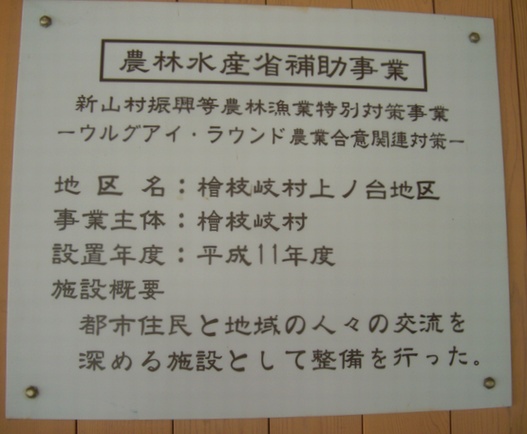 農林水産省補助事業
新山村振興等農林漁業特別対策事業
ーウルグアイ・ラウンド農業合意関連対策ー
地区名：檜枝岐村上ノ台地区
事業主体：檜枝岐村
設置年度：平成11年度
施設概要
都市住民と地域の人々の交流を
深める施設として整備を行った。